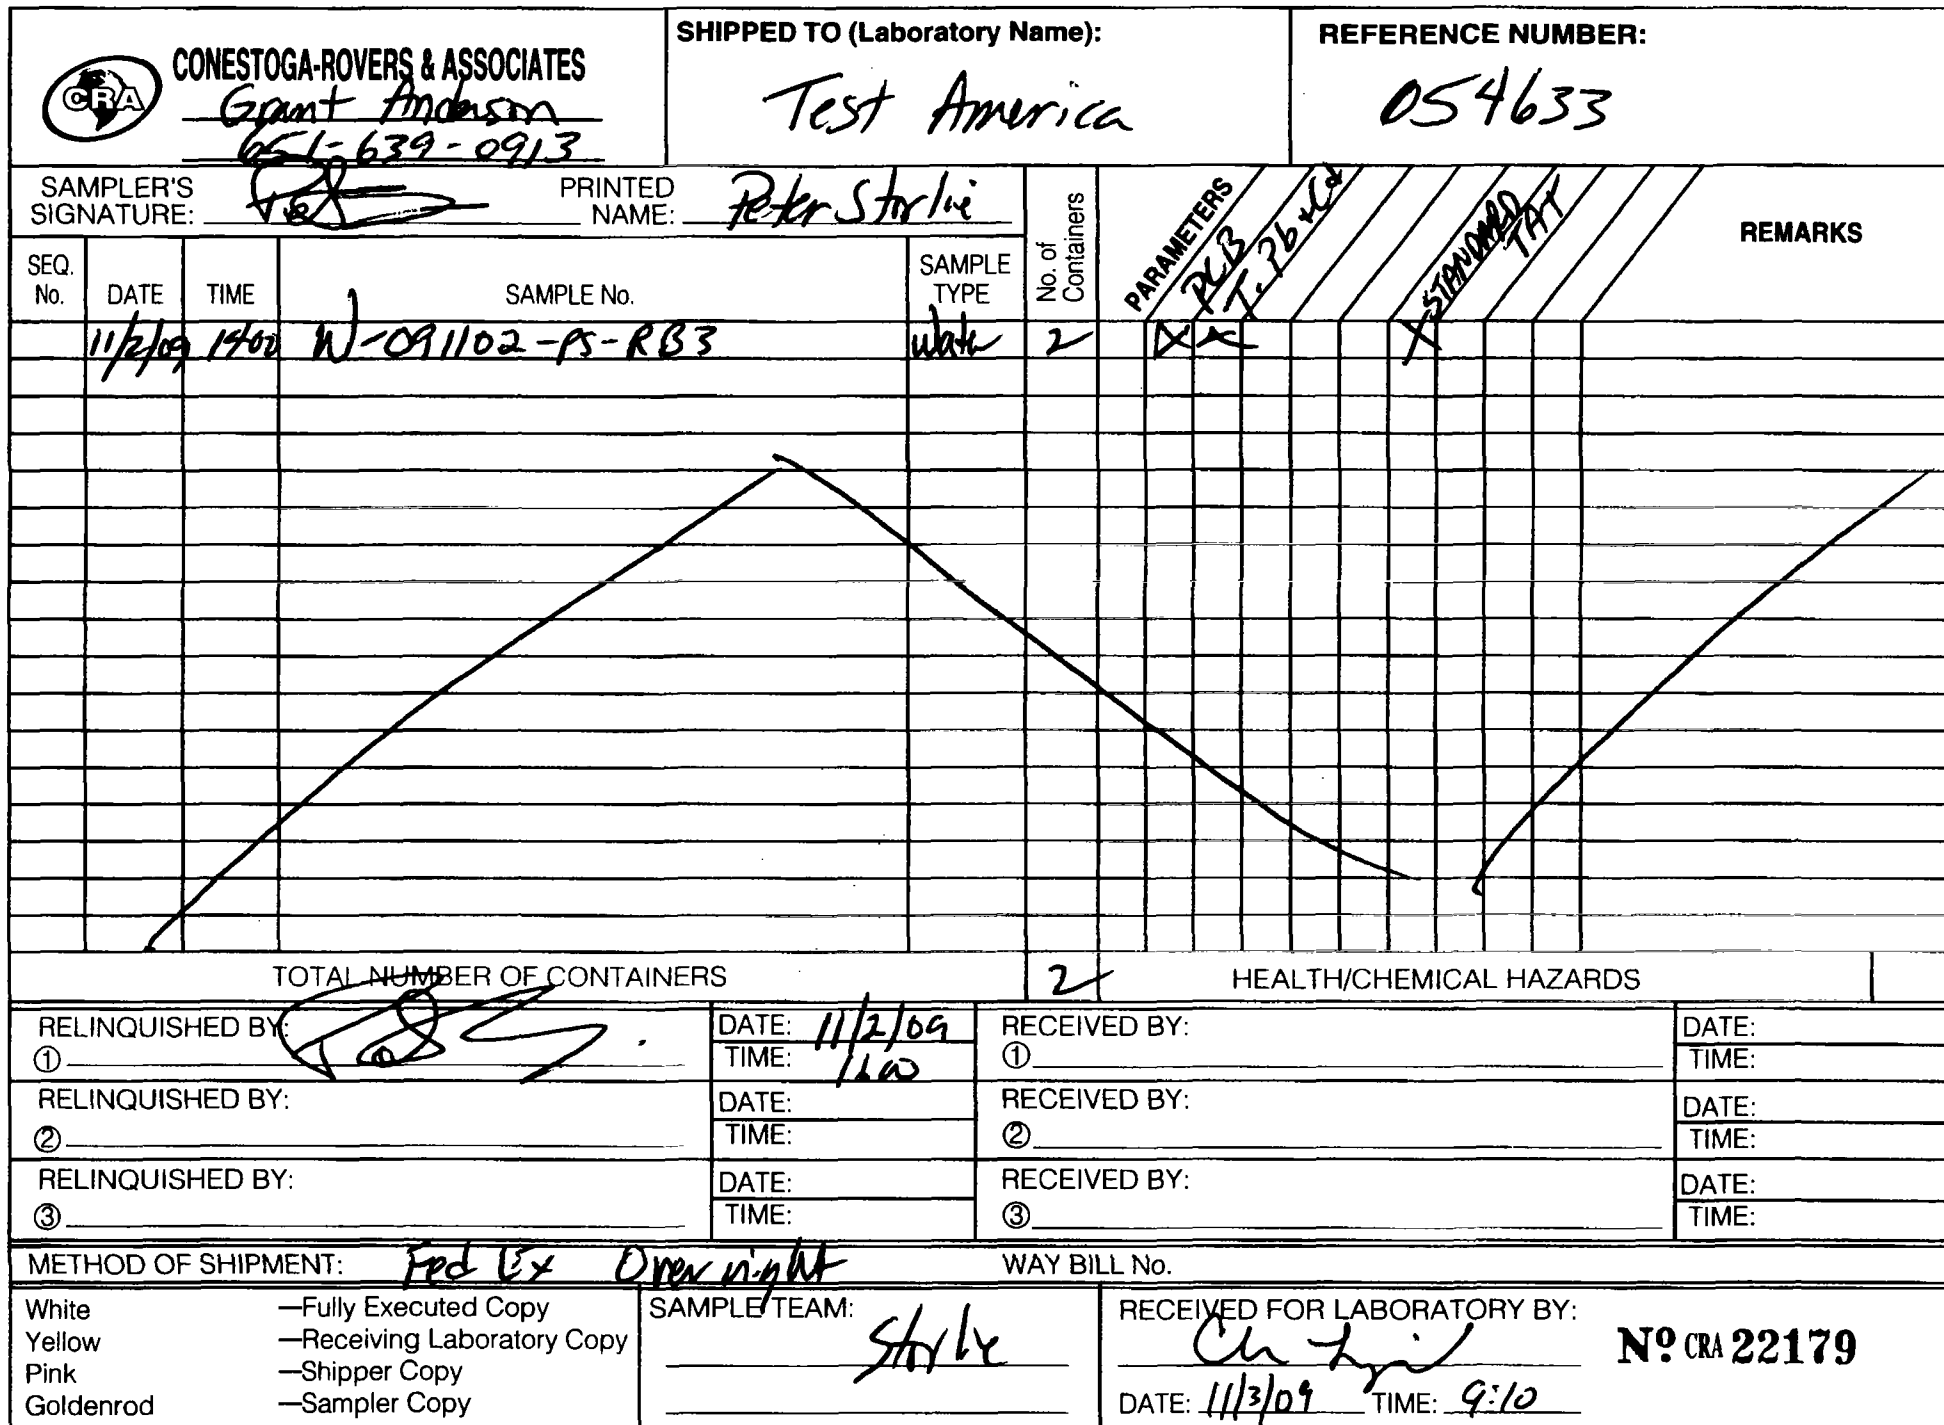 CRA
CONESTOGA-ROVERS & ASSOCIATES
Grant Anderson
651-639-0913
SHIPPED TO (Laboratory Name):
Test America
REFERENCE NUMBER:
054633
SAMPLER'S
SIGNATURE:
PRINTED
NAME: Peter Storlie
SEQ.
No.
DATE
TIME
SAMPLE No.
SAMPLE
TYPE
No. of
Containers
PARAMETERS
PCB
T. Pb + Cd
STANDARD
TAT
REMARKS
11/2/09 1400 W-091102-PS-RB3 Water 2 X X X
TOTAL NUMBER OF CONTAINERS 2 HEALTH/CHEMICAL HAZARDS
RELINQUISHED BY:
①
DATE: 11/2/09
TIME: 1600
RECEIVED BY:
①
DATE:
TIME:
RELINQUISHED BY:
②
DATE:
TIME:
RECEIVED BY:
②
DATE:
TIME:
RELINQUISHED BY:
③
DATE:
TIME:
RECEIVED BY:
③
DATE:
TIME:
METHOD OF SHIPMENT: Fed Ex Overnight WAY BILL No.
White —Fully Executed Copy
Yellow —Receiving Laboratory Copy
Pink —Shipper Copy
Goldenrod —Sampler Copy
SAMPLE TEAM:
Storlie
RECEIVED FOR LABORATORY BY:
DATE: 11/3/09 TIME: 9:10
Nº CRA 22179